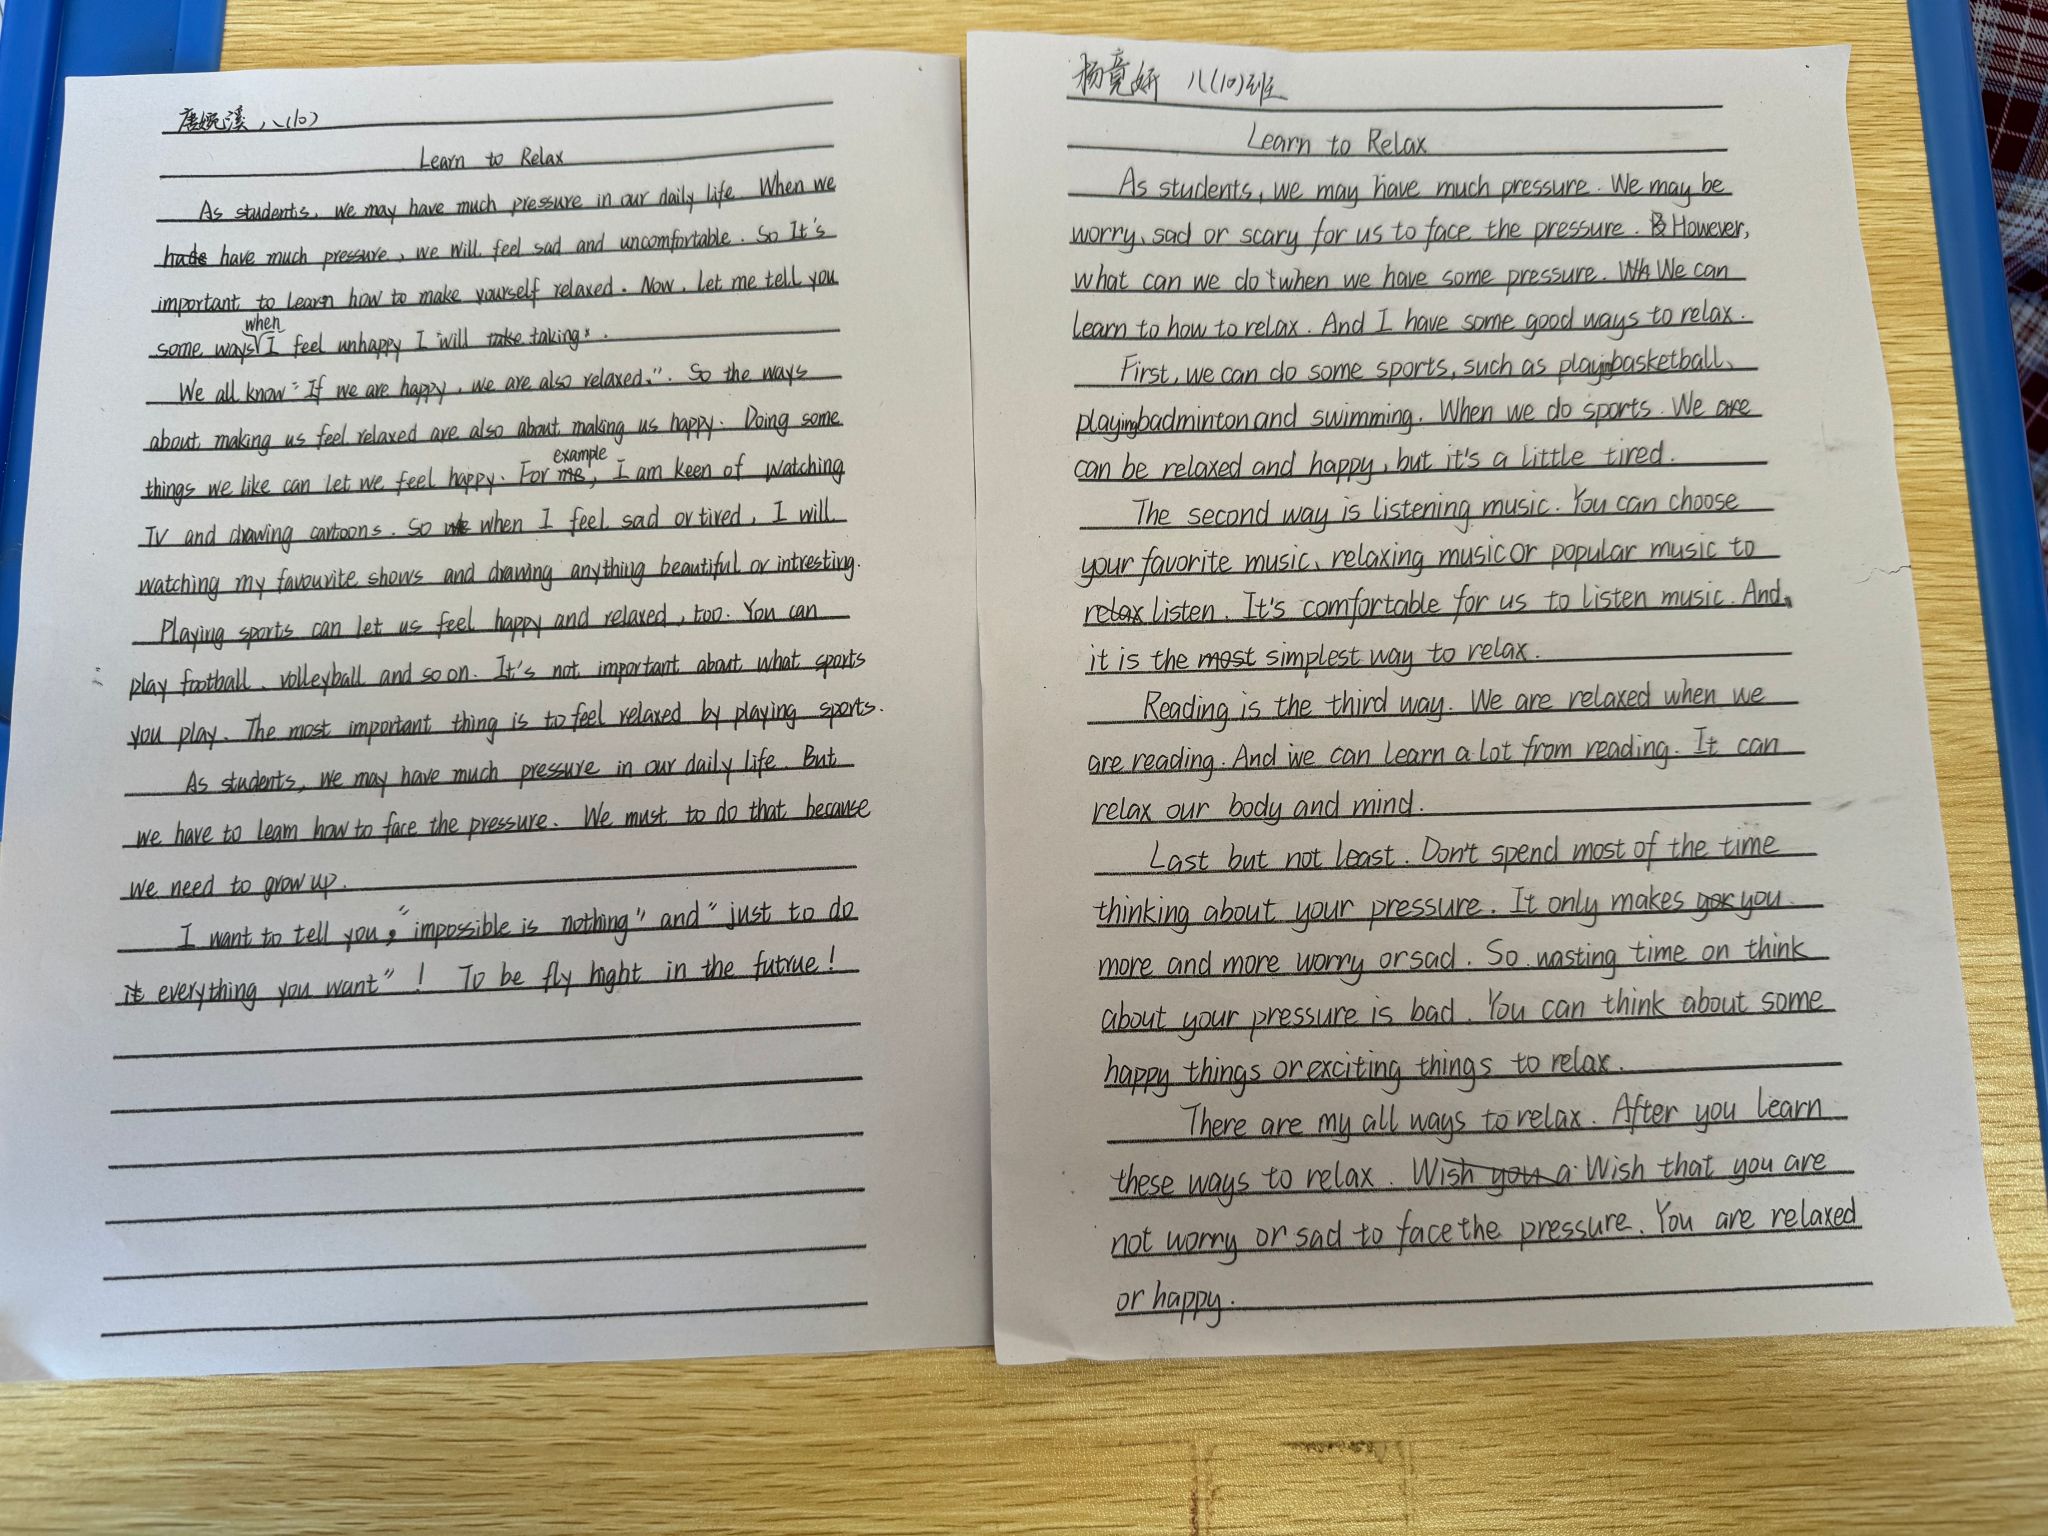 唐婉溪 八(10)
Learn to Relax
As students, we may have much pressure in our daily life. When we
have much pressure, we will feel sad and uncomfortable. So It's
important to learn how to make yourself relaxed. Now, let me tell you
some ways when I feel unhappy I will taking.
We all know "If we are happy, we are also relaxed.". So the ways
about making us feel relaxed are also about making us happy. Doing some
things we like can let we feel happy. For example, I am keen of watching
TV and drawing cartoons. So when I feel sad or tired, I will
watching my favourite shows and drawing anything beautiful or intresting.
Playing sports can let us feel happy and relaxed, too. You can
play football、volleyball and so on. It's not important about what sports
you play. The most important thing is to feel relaxed by playing sports.
As students, we may have much pressure in our daily life. But
we have to learn how to face the pressure. We must to do that because
we need to grow up.
I want to tell you, "impossible is nothing" and "just to do
everything you want"! To be fly hight in the futrue!
杨竟妍 八(10)班
Learn to Relax
As students, we may have much pressure. We may be
worry、sad or scary for us to face the pressure. However,
what can we do when we have some pressure. We can
learn to how to relax. And I have some good ways to relax.
First, we can do some sports, such as playing basketball、
playing badminton and swimming. When we do sports. We
can be relaxed and happy, but it's a little tired.
The second way is listening music. You can choose
your favorite music、relaxing music or popular music to
listen. It's comfortable for us to listen music. And,
it is the simplest way to relax.
Reading is the third way. We are relaxed when we
are reading. And we can learn a lot from reading. It can
relax our body and mind.
Last but not least. Don't spend most of the time
thinking about your pressure. It only makes you
more and more worry or sad. So wasting time on think
about your pressure is bad. You can think about some
happy things or exciting things to relax.
There are my all ways to relax. After you learn
these ways to relax. Wish that you are
not worry or sad to face the pressure. You are relaxed
or happy.